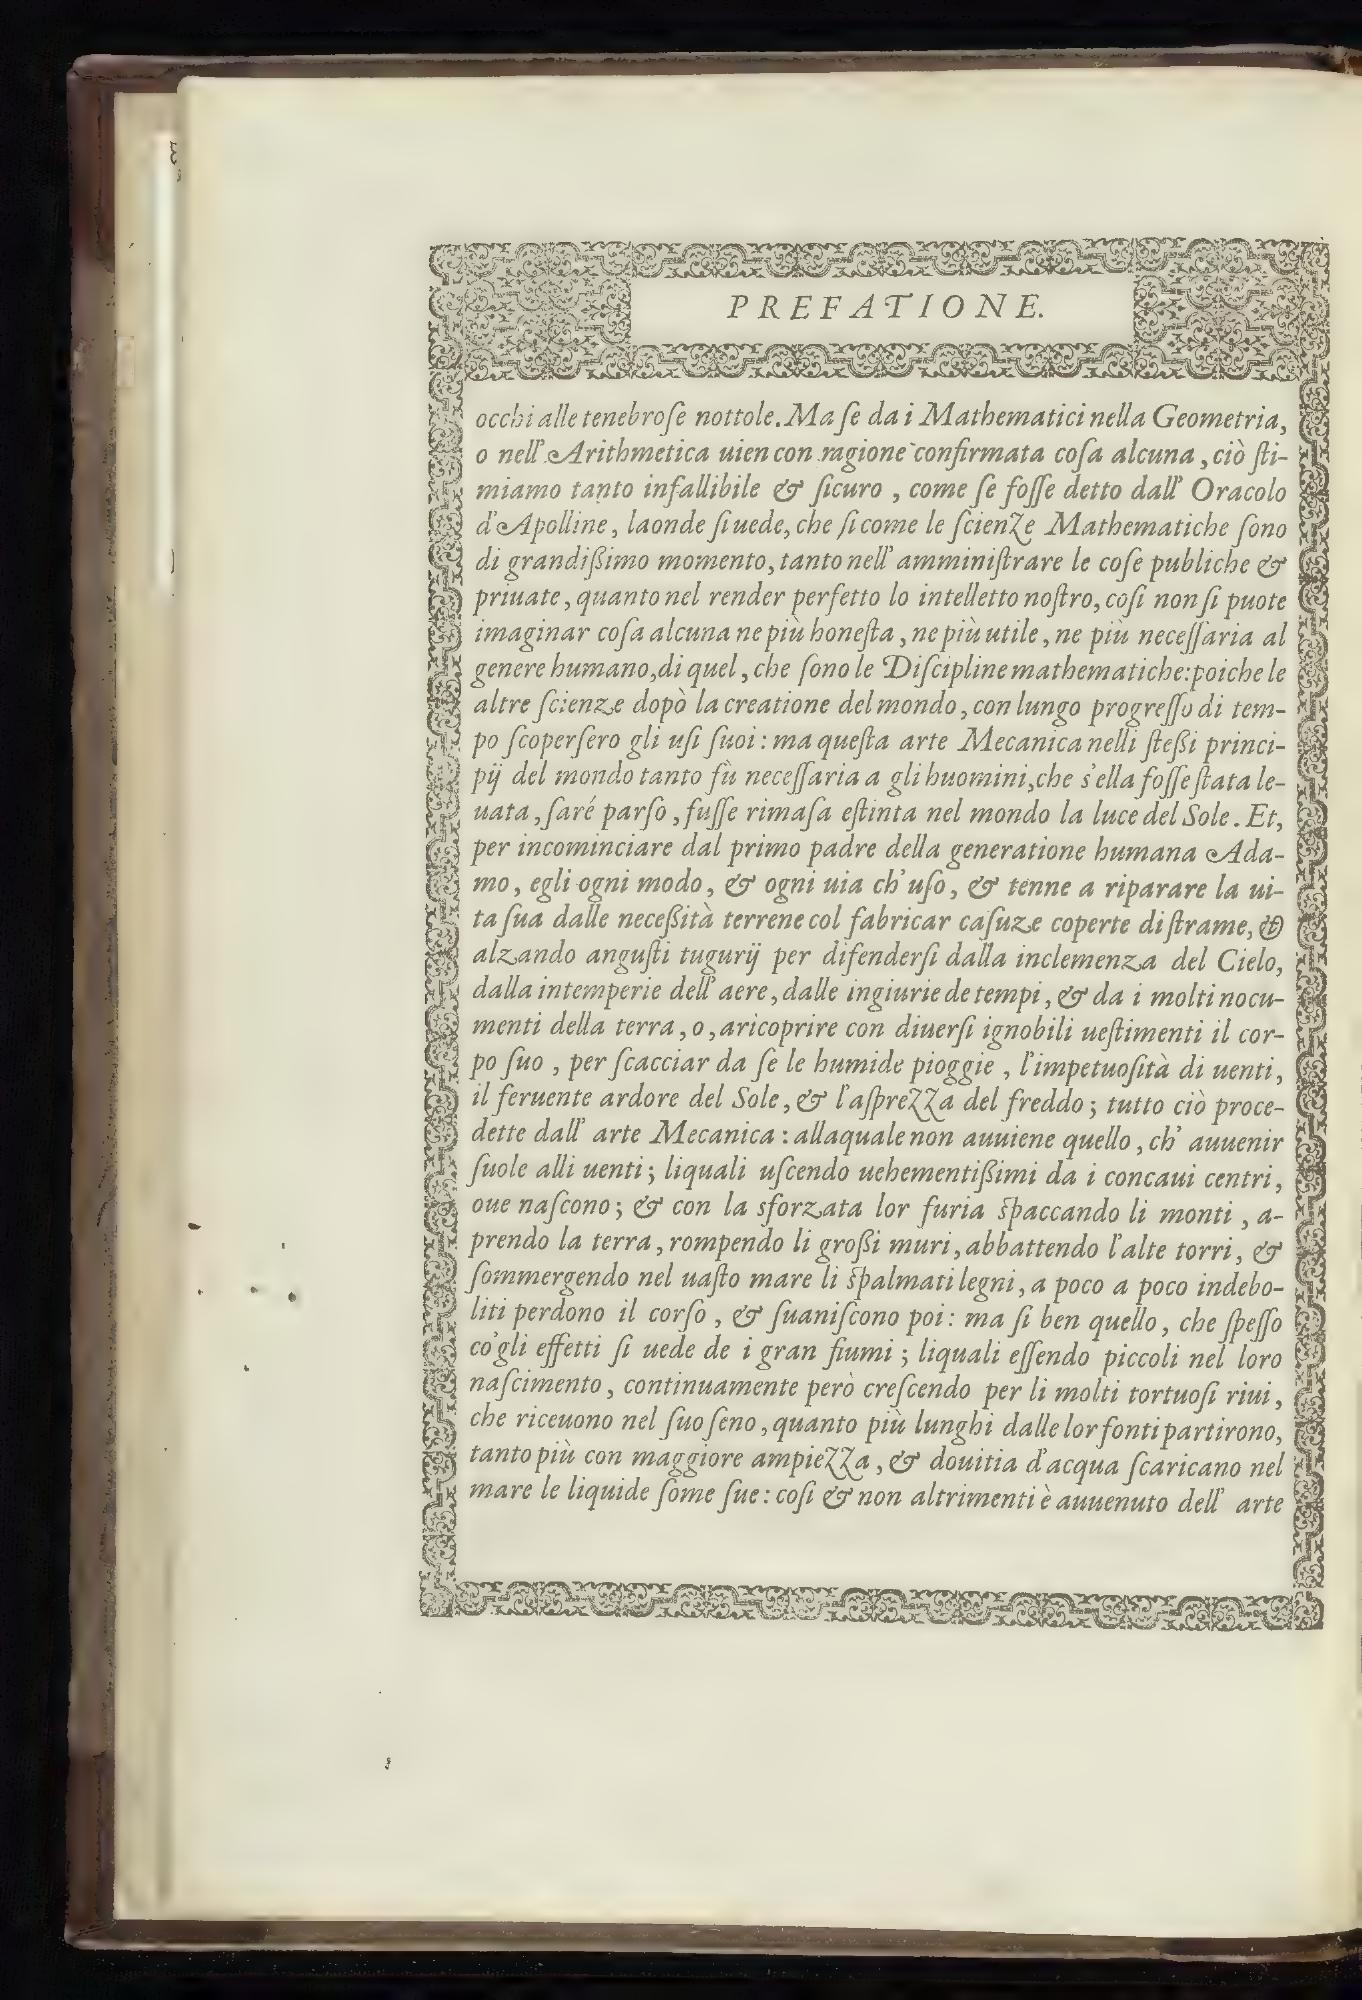 PREFATIONE.
occhi alle tenebroſe nottole. Ma ſe da i Mathematici nella Geometria,
o nell' Arithmetica uien con ragione confirmata coſa alcuna, ciò ſti-
miamo tanto infallibile & ſicuro, come ſe foſſe detto dall' Oracolo
d'Apolline, laonde ſi uede, che ſi come le ſcienze Mathematiche ſono
di grandißimo momento, tanto nell' amminiſtrare le coſe publiche &
priuate, quanto nel render perfetto lo intelletto noſtro, coſi non ſi puote
imaginar coſa alcuna ne più honeſta, ne più utile, ne più neceſſaria al
genere humano, di quel, che ſono le Diſcipline mathematiche: poiche le
altre ſcienze dopò la creatione del mondo, con lungo progreſſo di tem-
po ſcoperſero gli uſi ſuoi: ma queſta arte Mecanica nelli ſteßi princi-
pij del mondo tanto fù neceſſaria a gli huomini, che s'ella foſſe ſtata le-
uata, ſaré parſo, fuſſe rimaſa eſtinta nel mondo la luce del Sole. Et,
per incominciare dal primo padre della generatione humana Ada-
mo, egli ogni modo, & ogni uia ch' uſo, & tenne a riparare la ui-
ta ſua dalle neceßità terrene col fabricar caſuze coperte di ſtrame, &
alzando anguſti tugurij per difenderſi dalla inclemenza del Cielo,
dalla intemperie dell' aere, dalle ingiurie de tempi, & da i molti nocu-
menti della terra, o, aricoprire con diuerſi ignobili ueſtimenti il cor-
po ſuo, per ſcacciar da ſe le humide pioggie, l'impetuoſità di uenti,
il feruente ardore del Sole, & l'aſprezza del freddo; tutto ciò proce-
dette dall' arte Mecanica: allaquale non auuiene quello, ch' auuenir
ſuole alli uenti; liquali uſcendo uehementißimi da i concaui centri,
oue naſcono; & con la sforzata lor furia ſpaccando li monti, a-
prendo la terra, rompendo li großi muri, abbattendo l'alte torri, &
ſommergendo nel uaſto mare li ſpalmati legni, a poco a poco indebo-
liti perdono il corſo, & ſuaniſcono poi: ma ſi ben quello, che ſpeſſo
co'gli effetti ſi uede de i gran fiumi; liquali eſſendo piccoli nel loro
naſcimento, continuamente però creſcendo per li molti tortuoſi riui,
che riceuono nel ſuo ſeno, quanto più lunghi dalle lor fonti partirono,
tanto più con maggiore ampiezza, & douitia d'acqua ſcaricano nel
mare le liquide ſome ſue: coſi & non altrimenti è auuenuto dell' arte